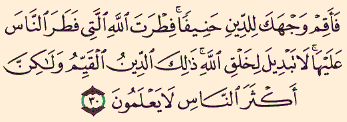 فَأَقِمْ وَجْهَكَ لِلدِّينِ حَنِيفًا ۚ فِطْرَتَ اللَّهِ الَّتِي فَطَرَ النَّاسَ
عَلَيْهَا ۚ لَا تَبْدِيلَ لِخَلْقِ اللَّهِ ۚ ذَٰلِكَ الدِّينُ الْقَيِّمُ وَلَٰكِنَّ
أَكْثَرَ النَّاسِ لَا يَعْلَمُونَ ٣٠